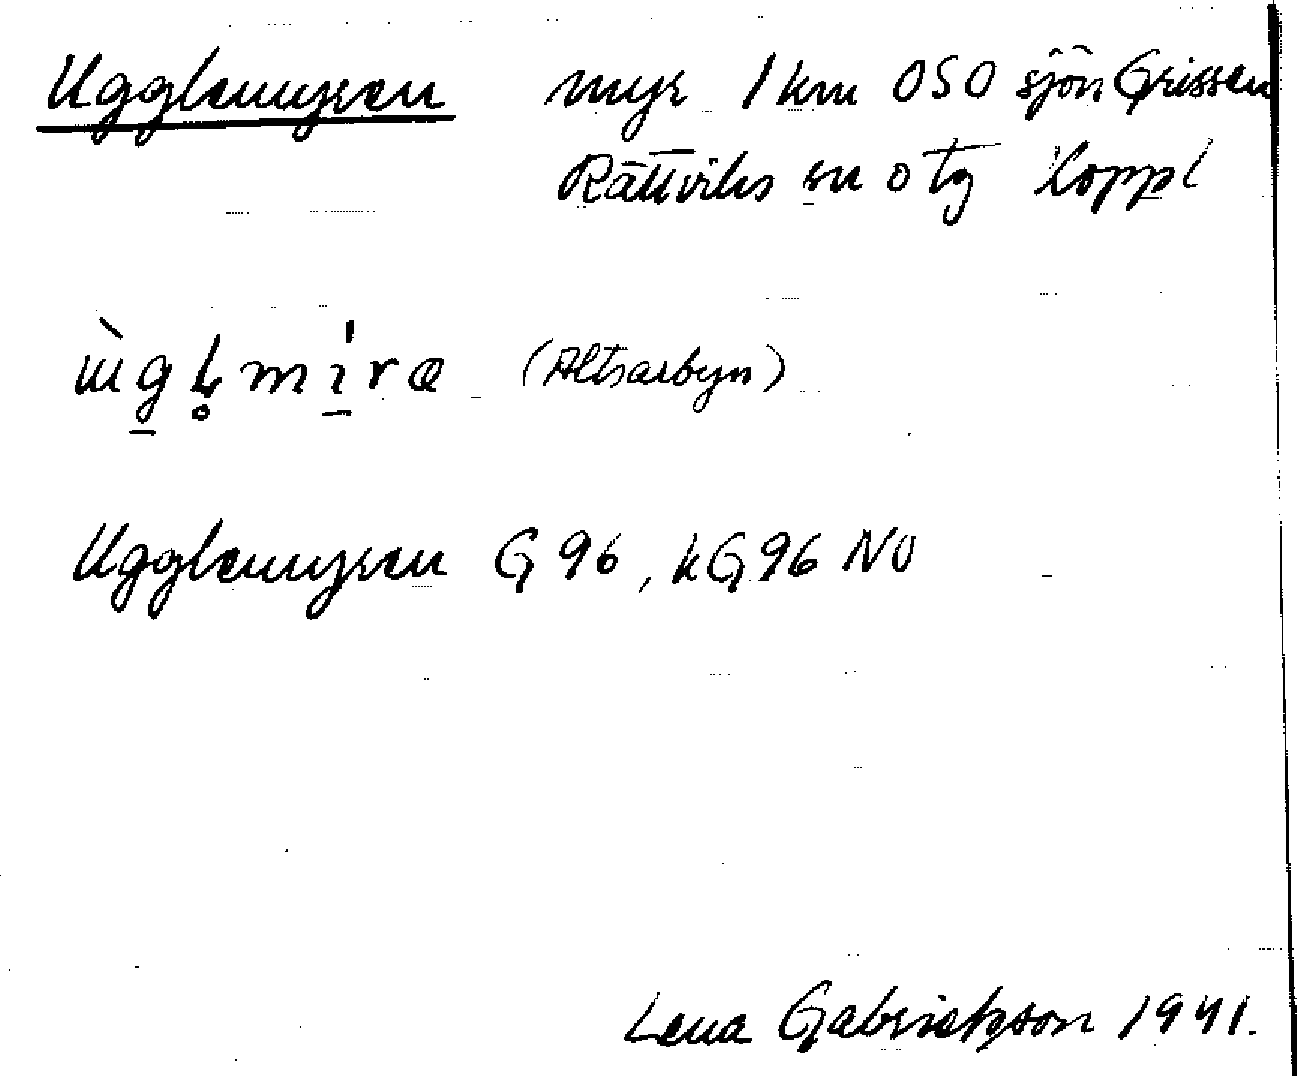 Ugglemyren myr 1 km OSO sjön Grissen
Rättviks sn o tg Koppl
ùgḷmi̱ra (Altsarbyn)
Ugglemyren G 96, kG 96 NO
Lena Gabrielsson 1941.